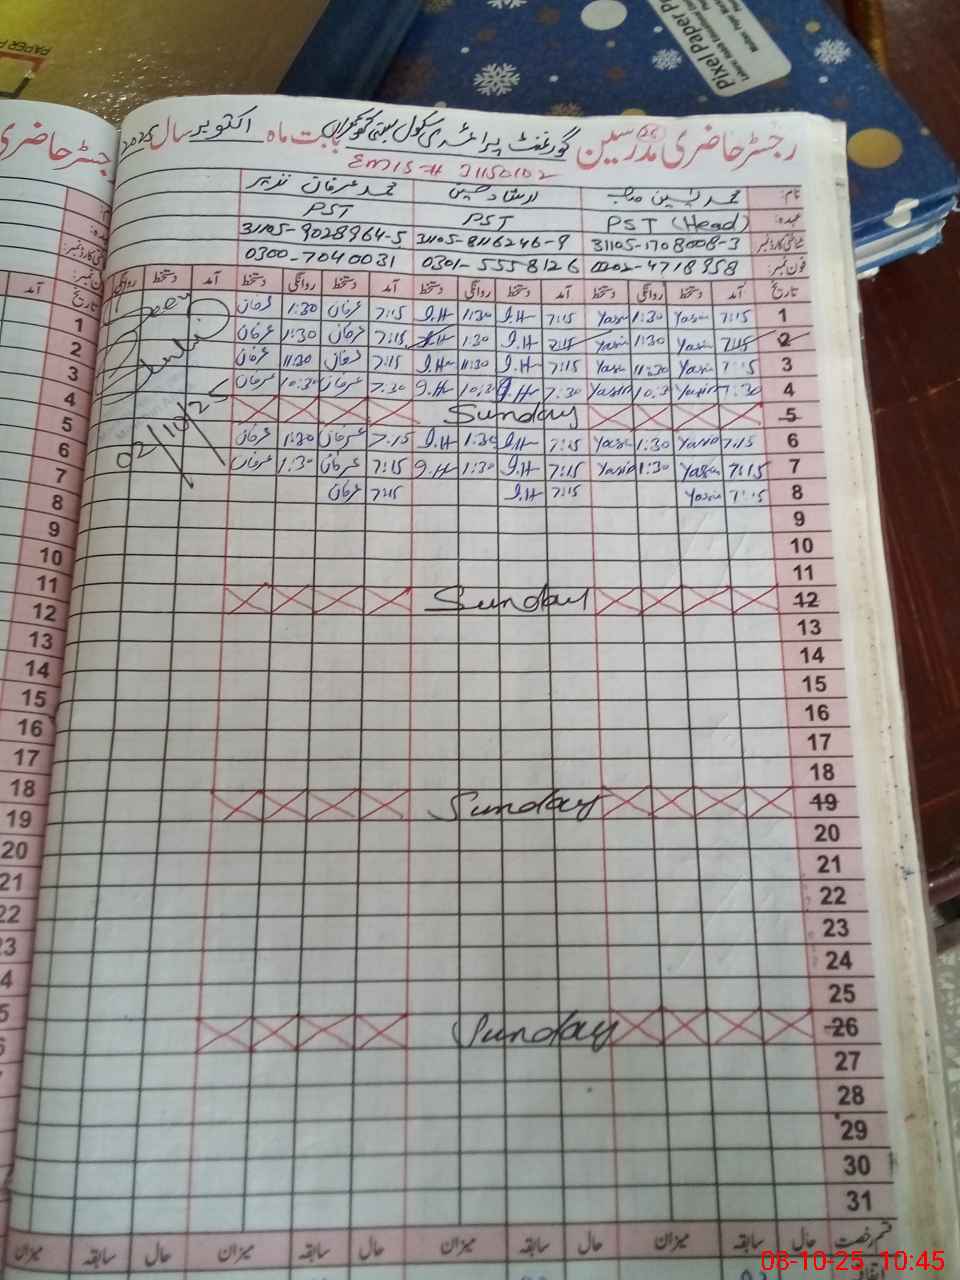 PAPER P
Pixel Paper Pr
رجسٹر حاضری مدرسین گورنمنٹ پرائمری سکول بستی بابت ماہ اکتوبر سال 2025
EMIS-# 31150102
نام: محمد یٰسین ارشاد حسین محمد عرفان نذیر
عہدہ: PST (Head) PST PST
شناختی کارڈ نمبر: 31105-1708008-3 31105-8116246-9 31105-9028964-5
فون نمبر: 0302-4718958 0301-5558126 0300-7040031
تاریخ آمد دستخط روانگی دستخط آمد دستخط روانگی دستخط آمد دستخط روانگی دستخط آمد دستخط روانگی
1 7:15 Yasin 1:30 Yasin 7:15 I.H 1:30 I.H 7:15 عرفان 1:30 عرفان
2 7:15 Yasin 1:30 Yasin 7:15 I.H 1:30 I.H 7:15 عرفان 1:30 عرفان
3 7:15 Yasin 11:30 Yasin 7:15 I.H 11:30 I.H 7:15 عرفان 11:30 عرفان
4 7:30 Yasin 10:30 Yasin 7:30 I.H 10:30 I.H 7:30 عرفان 10:30 عرفان
5 Sunday
6 7:15 Yasin 1:30 Yasin 7:15 I.H 1:30 I.H 7:15 عرفان 1:30 عرفان
7 7:15 Yasin 1:30 Yasin 7:15 I.H 1:30 I.H 7:15 عرفان 1:30 عرفان
8 7:15 Yasin 7:15 I.H 7:15 عرفان
02/10/25
9
10
11
12 Sunday
13
14
15
16
17
18
19 Sunday
20
21
22
23
24
25
26 Sunday
27
28
29
30
31
قسم رخصت حال سابقہ میزان حال سابقہ میزان حال سابقہ میزان حال سابقہ میزان
08-10-25 10:45